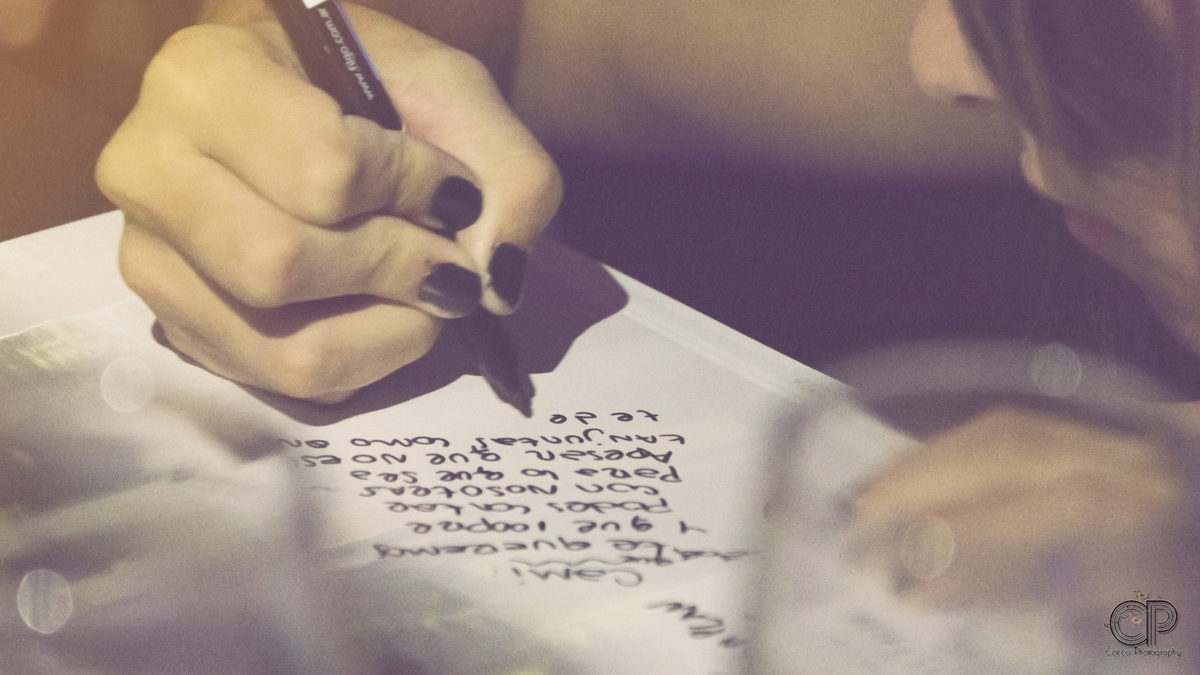 Cami:
queremos
y que
Podes contar
con nosotras
Para lo que sea
Apesar que no es
tan juntas como an
te de
www.filgo.com.ar
CP
Cocco Photography